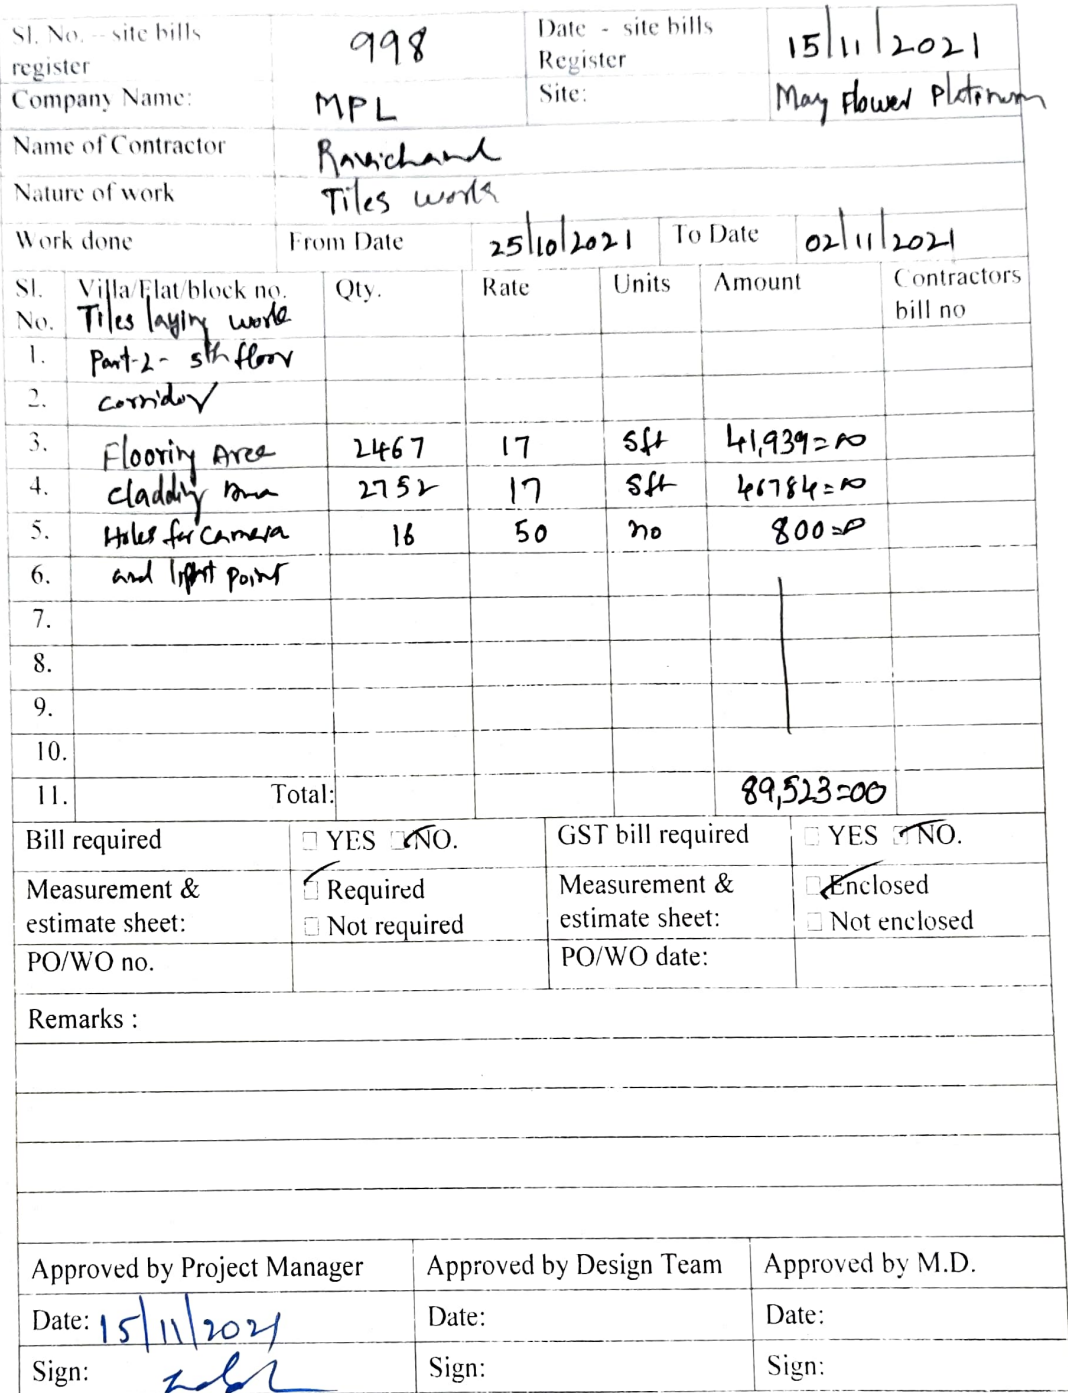 Sl. No. – site bills register 998 Date - site bills Register 15/11/2021
Company Name: MPL Site: May Flower Platinum
Name of Contractor Ravichand
Nature of work Tiles work
Work done From Date 25/10/2021 To Date 02/11/2021
Sl. No. Villa/Flat/block no. Qty. Rate Units Amount Contractors bill no
Tiles laying work
1. Part-2 - 5th floor
2. corridor
3. Flooring Area 2467 17 Sft 41,939=00
4. Cladding 2752 17 Sft 46784=00
5. Holes for camera 16 50 no 800=00
6. and light point
7.
8.
9.
10.
11. Total: 89,523=00
Bill required YES NO. GST bill required YES NO.
Measurement & estimate sheet: Required Not required Measurement & estimate sheet: Enclosed Not enclosed
PO/WO no. PO/WO date:
Remarks :
Approved by Project Manager Approved by Design Team Approved by M.D.
Date: 15/11/2021 Date: Date:
Sign: Sign: Sign: